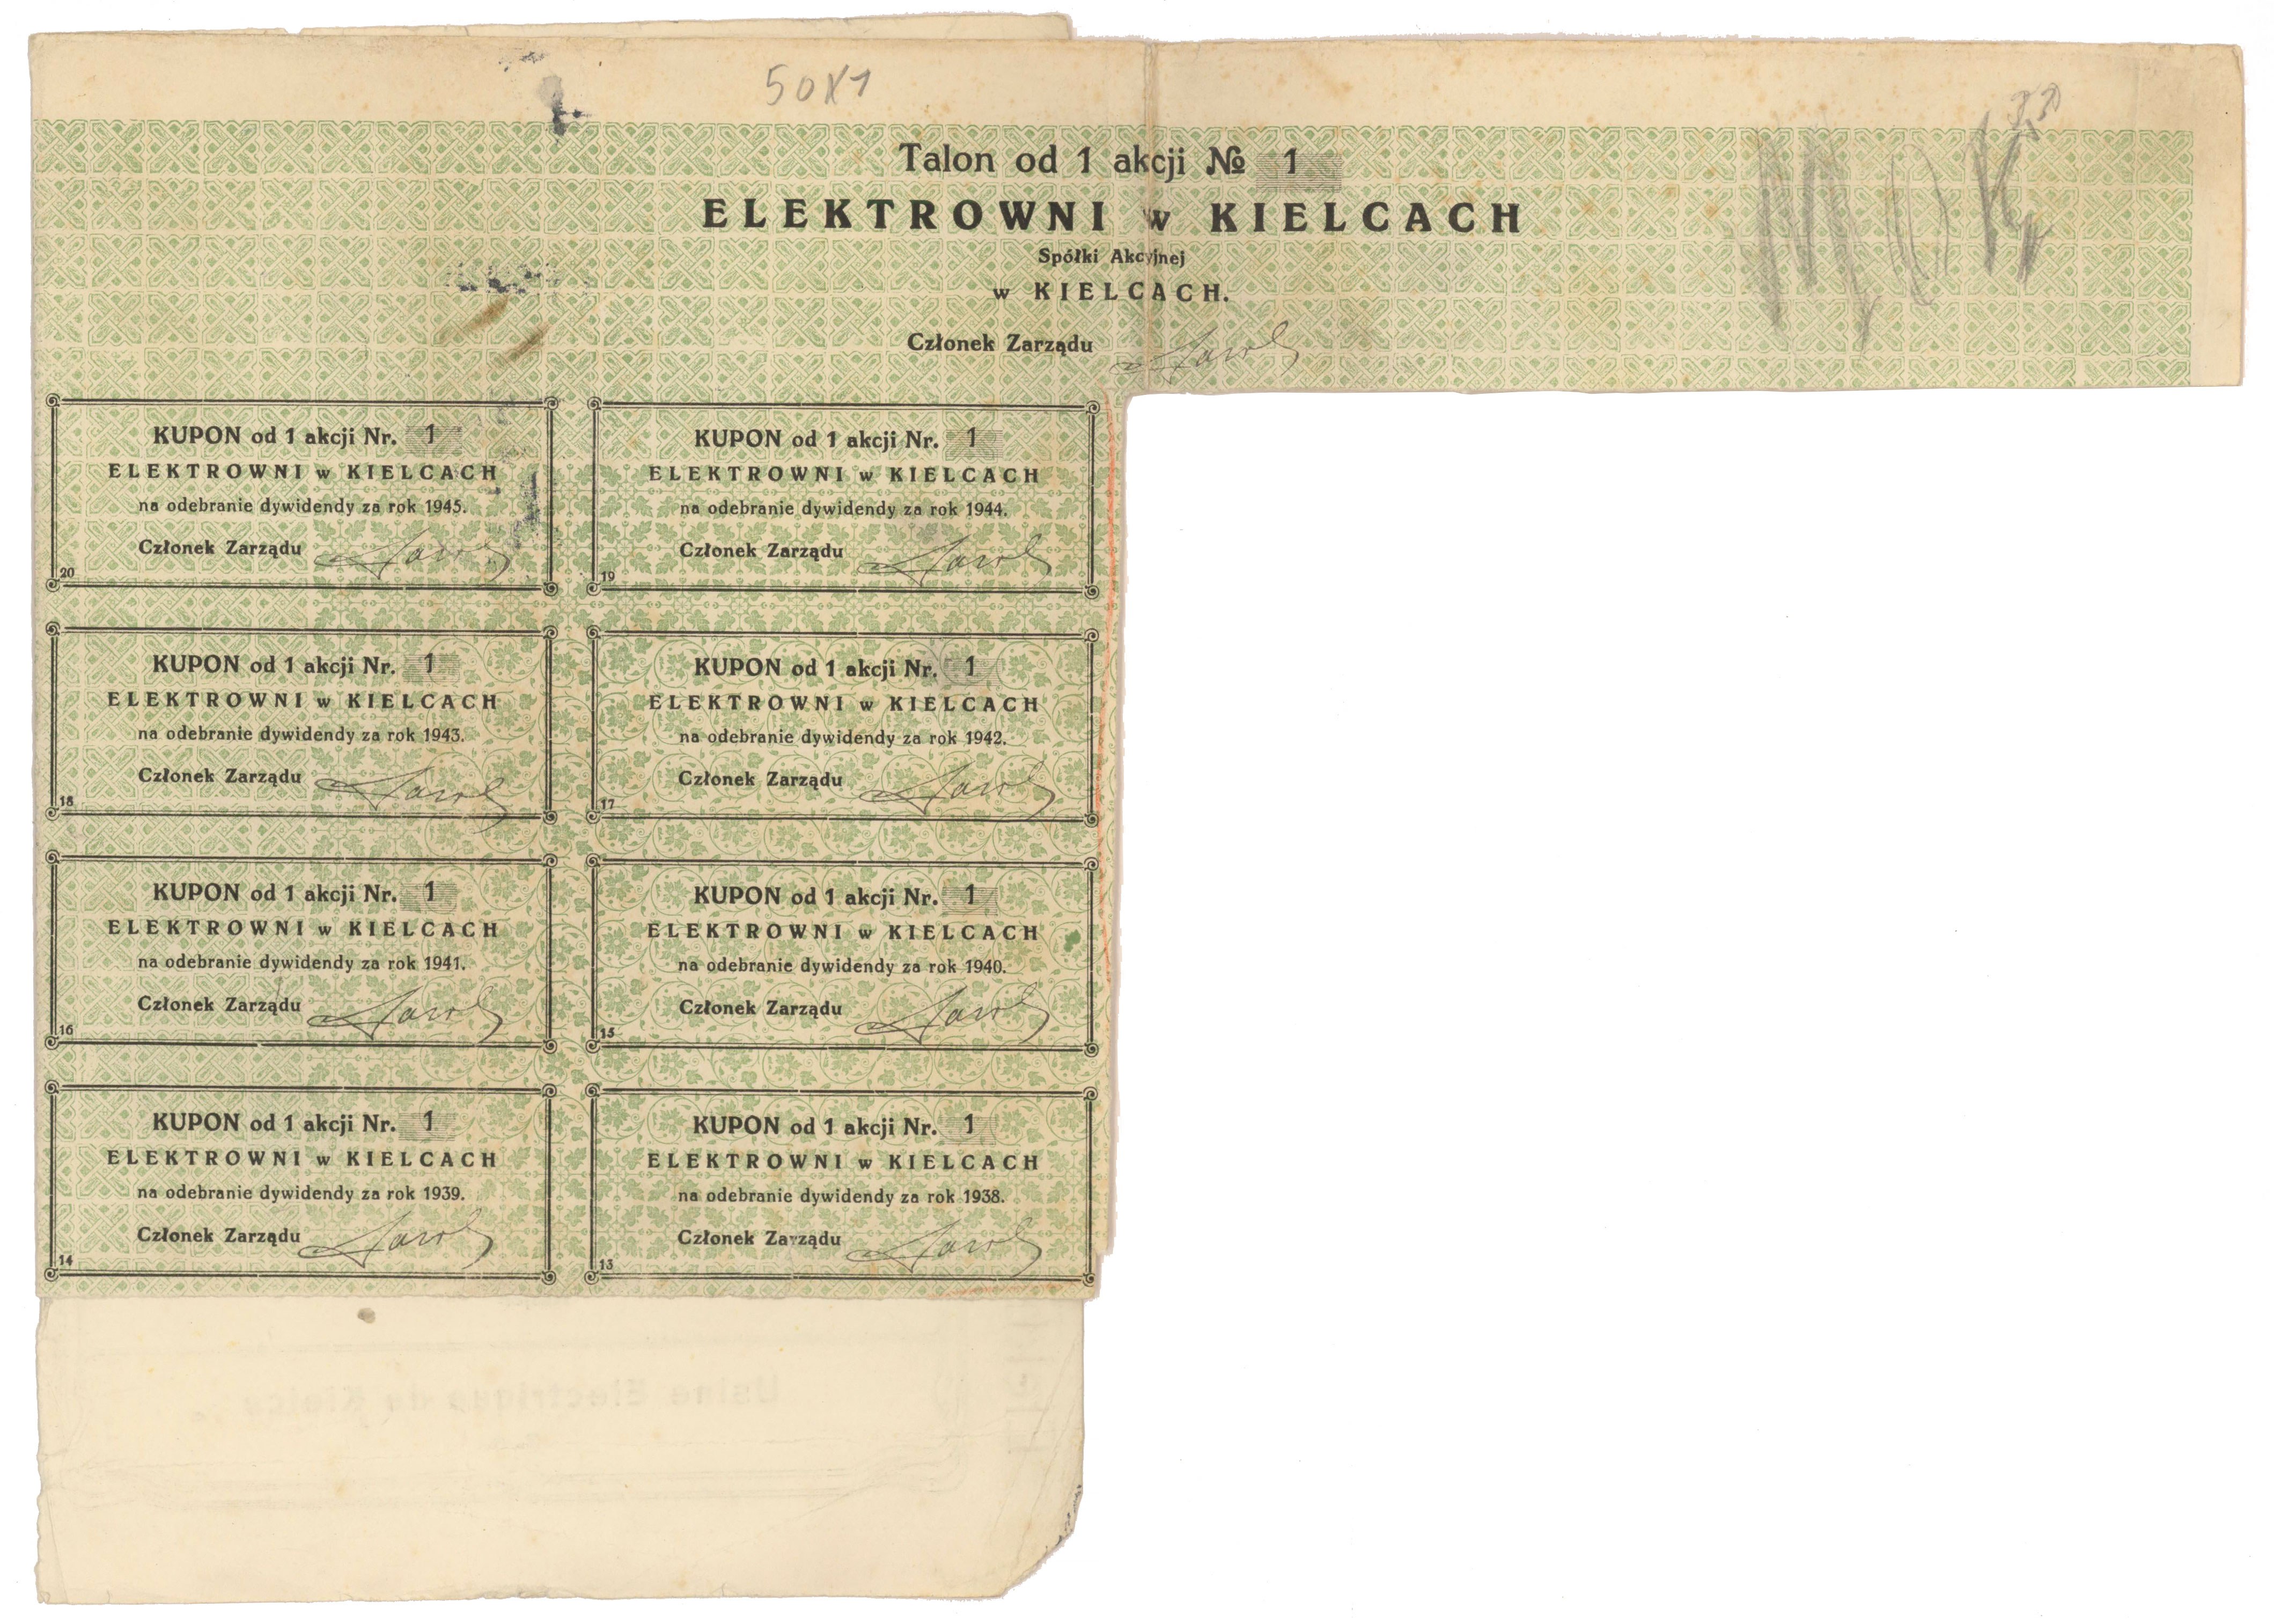 50X1
Talon od 1 akcji № 1
ELEKTROWNI w KIELCACH
Spółki Akcyjnej
w KIELCACH.
Członek Zarządu
KUPON od 1 akcji Nr. 1
ELEKTROWNI w KIELCACH
na odebranie dywidendy za rok 1945.
Członek Zarządu
20
KUPON od 1 akcji Nr. 1
ELEKTROWNI w KIELCACH
na odebranie dywidendy za rok 1944.
Członek Zarządu
19
KUPON od 1 akcji Nr. 1
ELEKTROWNI w KIELCACH
na odebranie dywidendy za rok 1943.
Członek Zarządu
18
KUPON od 1 akcji Nr. 1
ELEKTROWNI w KIELCACH
na odebranie dywidendy za rok 1942.
Członek Zarządu
17
KUPON od 1 akcji Nr. 1
ELEKTROWNI w KIELCACH
na odebranie dywidendy za rok 1941.
Członek Zarządu
16
KUPON od 1 akcji Nr. 1
ELEKTROWNI w KIELCACH
na odebranie dywidendy za rok 1940.
Członek Zarządu
15
KUPON od 1 akcji Nr. 1
ELEKTROWNI w KIELCACH
na odebranie dywidendy za rok 1939.
Członek Zarządu
14
KUPON od 1 akcji Nr. 1
ELEKTROWNI w KIELCACH
na odebranie dywidendy za rok 1938.
Członek Zarządu
13
Usine Electrique de Kielce